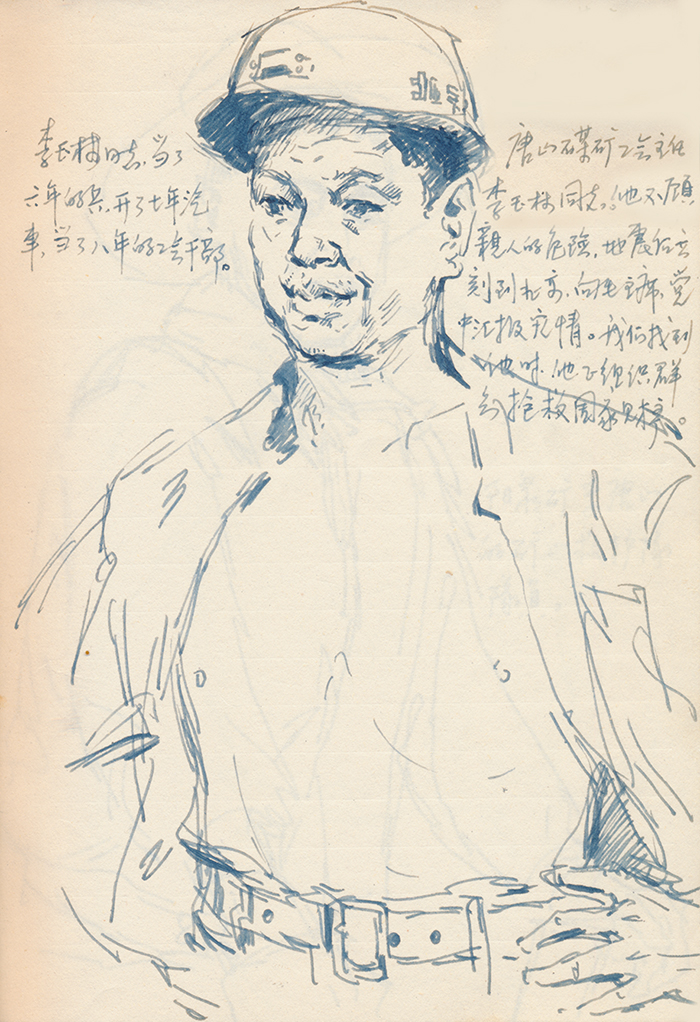 李玉林同志,当了
六年的兵,开了七年汽
车,当了八年的工会干部。
唐山煤矿工会主任
李玉林同志。他不顾
親人的危險,地震后立
刻到北京,向毛主席、党
中汇报灾情。我们找到
他时,他正组织群
众抢救国家财产。